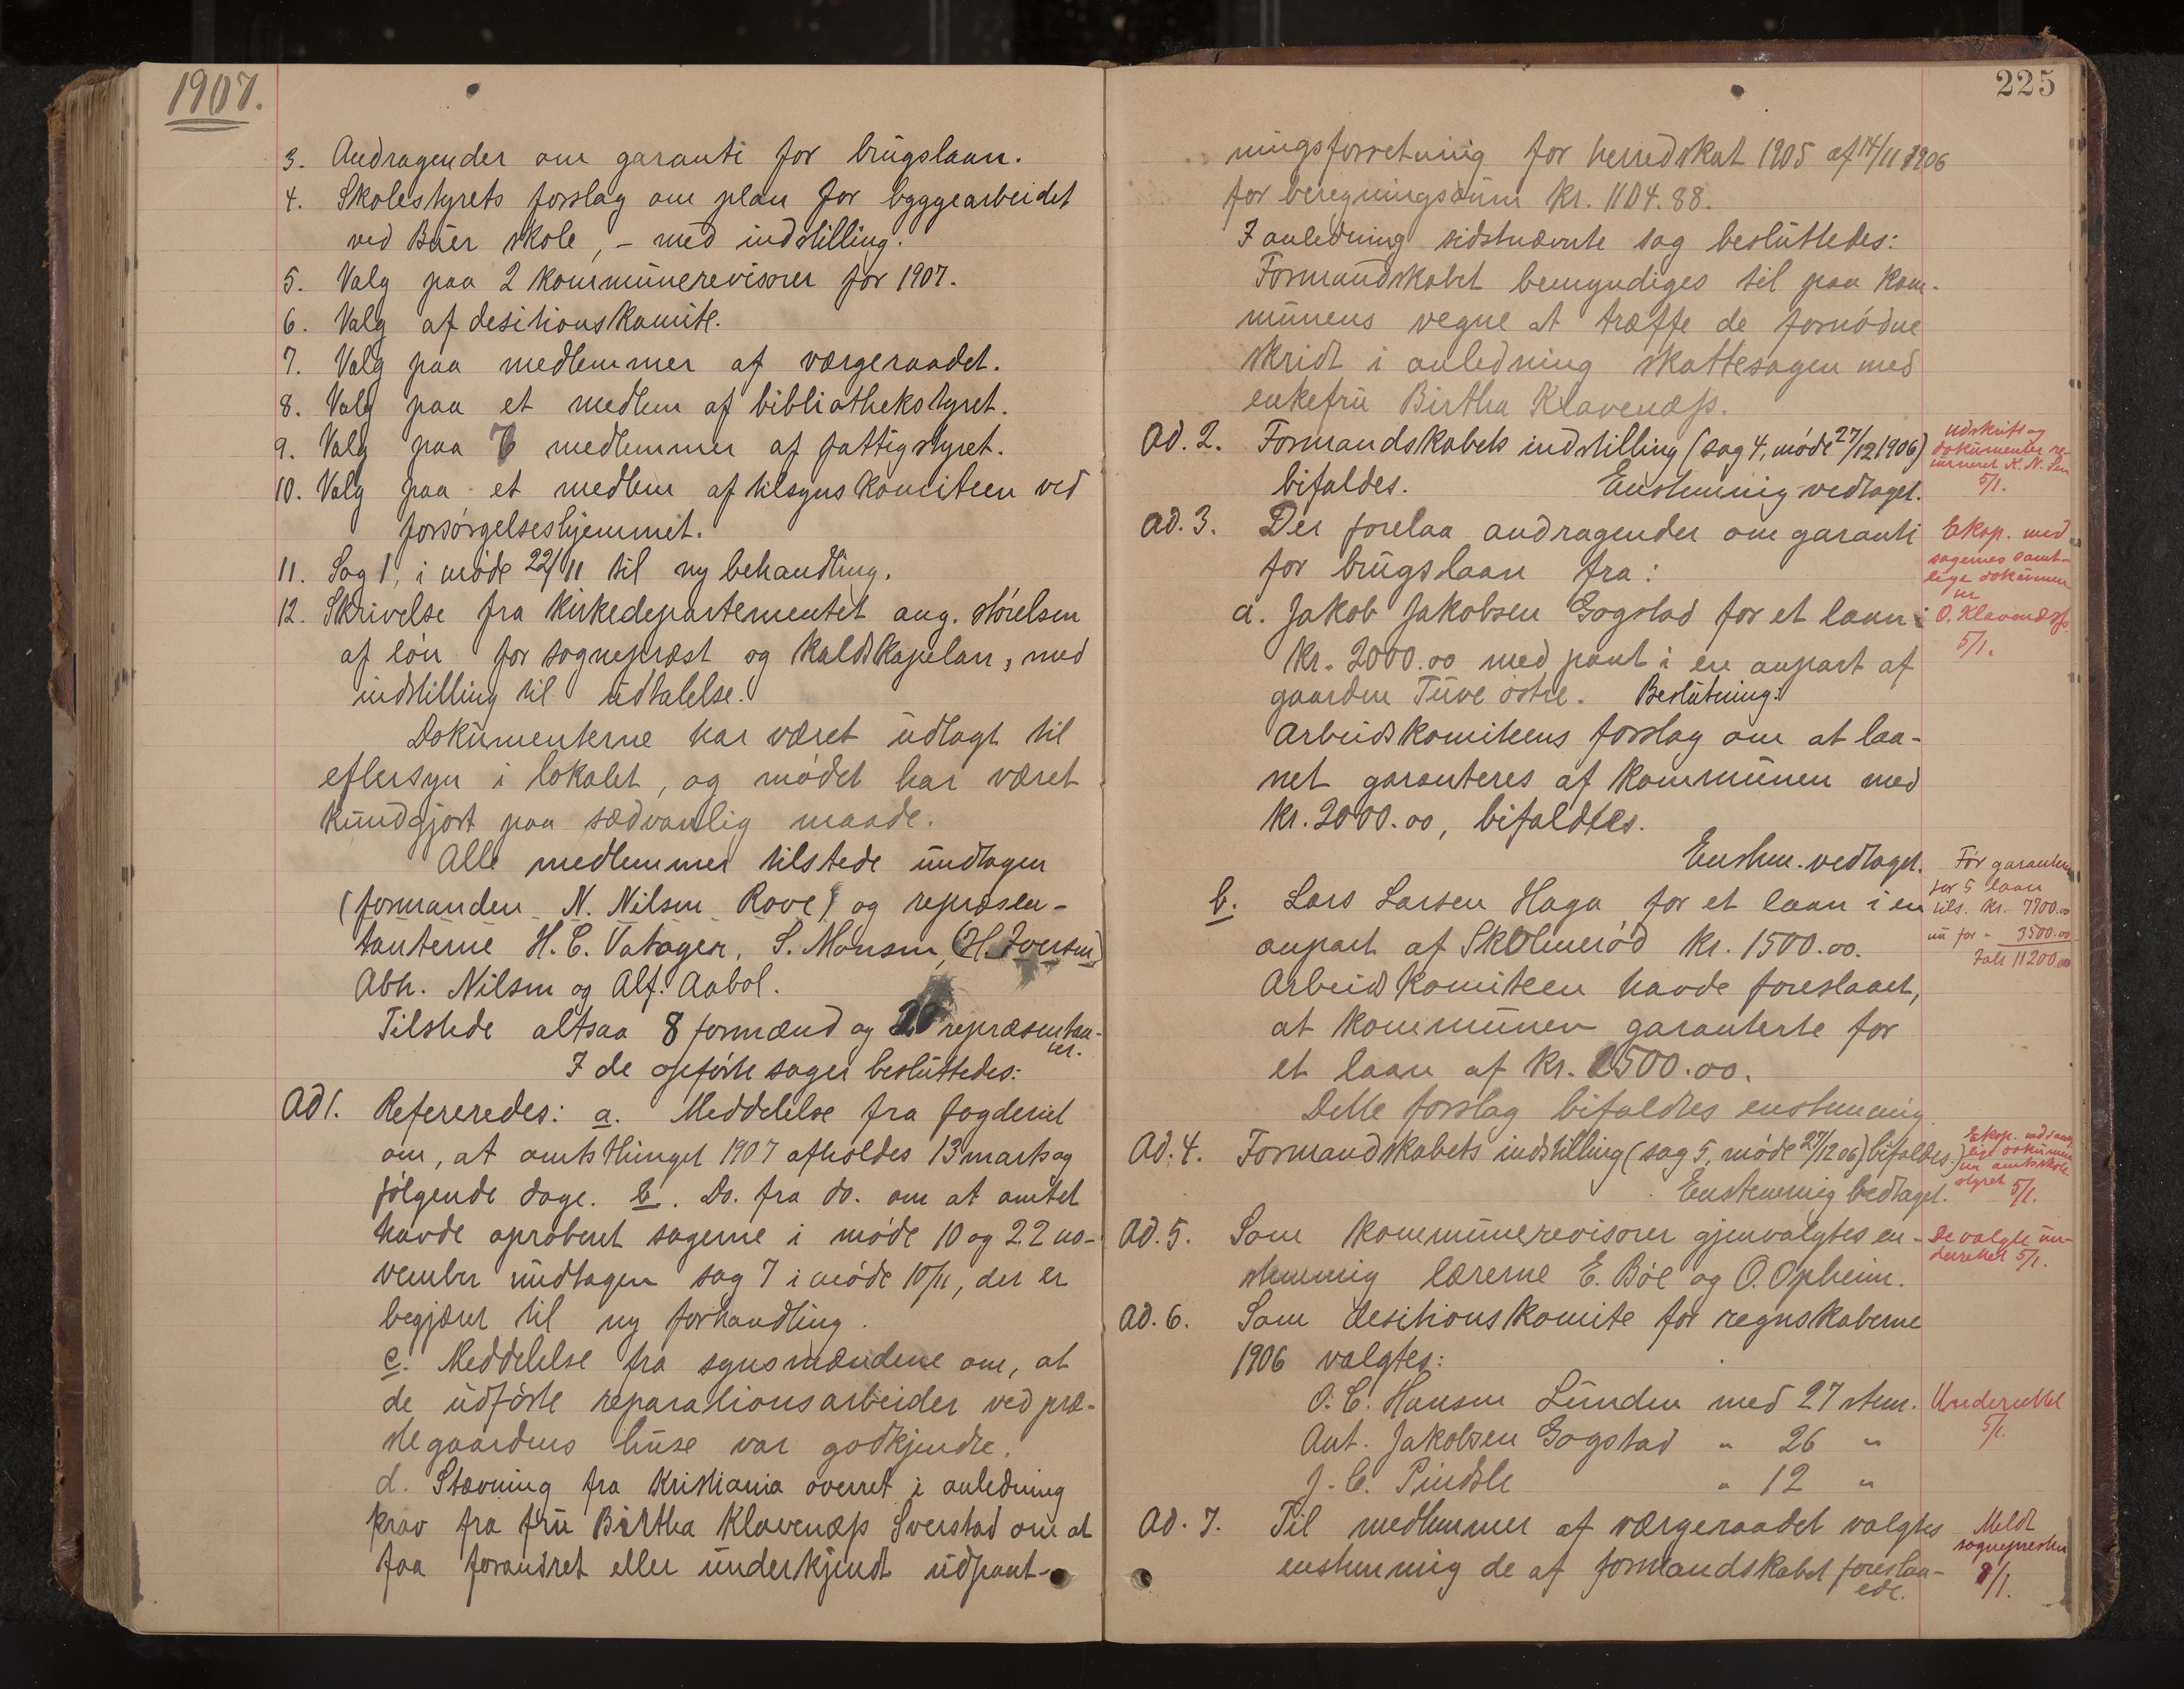 1907.
3. Andragender om garanti for brugslaan.
4. Skolestyrets forslag om plan for byggearbeidet
ved Buer skole, - med indstilling.
5. Valg paa 2 kommunerevisorer for 1907.
6. Valg af desitionskomite.
7. Valg paa medlemmer af værgeraadet.
8. Valg paa et medlem af bibliothekstyret.
9. Valg paa medlemmer af fattigstyret.
10. Valg paa et medlem af tilsynskomiteen ved
forsørgelseshjemmet.
11. Sag 1, i møde 22/11 til ny behandling.
12. Skrivelse fra Kirkedepartementet ang. størelsen
af løn for sogneprest og kaldskapelan, med
indstilling til udtalelse.
Dokumenterne har været udlagt til
eftersyn i lokalet, og mødet har været
kundgjort paa sædvanlig maade.
Alle medlemmer tilstede undtagen
(formanden N. Nilsen Rove) og repræsen-
tanterne H. C. Vatager, S. Monsen, (H. Iversen)
Abh. Nilsen og Alf. Aabol.
Tilstede altsaa 8 formænd og 20 repræsentan-
ter.
I de opførte sager besluttedes:
Ad 1. Refereredes: a. Meddelelse fra fogderiet
om, at amtsthinget 1907 afholdes 13 marts og
følgende dage. b. Do. fra do. om at amtet
havde aprobert sagerne i møde 10 og 22 no-
vember undtagen sag 7 i møde 10/11, der er
begjæret til ny forhandling.
c. Meddelelse fra synsmændene om, at
de udførte reparationsarbeider ved præ-
stegaardens huse var godkjendte.
d. Stævning fra Kristiania overret i anledning
krav fra fru Birtha Klavenæss Sverstad om at
faa forandret eller underkjendt udpant-
225
ningsforretning for herredskat 1905 af 14/11 1906
for beregningssum kr. 1104.88.
I anledning sidstnævnte sag besluttedes:
Formandskabet bemyndiges til paa kom-
munens vegne at træffe de fornødne
skridt i anledning skattesagen med
enkefru Birtha Klavenæss.
Ad. 2. Formandskabets indstilling (sag 4, møde 27/12 1906)
bifaldes. Enstemmig vedtaget.
Udskrift og
dokumenter re-
5/1.
Ad. 3. Der forelaa andragender om garanti
for brugslaan fra:
Eksp. med
sagernes samt-
lige dokumen
O. Klavenæss
5/1.
a. Jakob Jakobsen Gogstad for et laan
kr. 2000.00 med pant i en anpart af
gaarden Tuve østre. Beslutning:
Arbeidskomiteens forslag om at laa-
net garanteres af kommunen med
kr. 2000.00, bifaldtes.
Enstem. vedtaget.
b. Lars Larsen Haga for et laan i en
anpart af Skolmerød kr. 1500.00.
Før garanteret
for 5 laan
tils. kr. 7700.00
nu for " 3500.00
Ialt 11200.00
Arbeidskomiteen havde foreslaaet,
at kommunen garanterte for
et laan af kr. 1500.00.
Dette forslag bifaldtes enstemmig
Ad. 4. Formandskabets indstilling (sag 5, møde 27/12 06) bifaldes.
Enstemmig vedtaget.
styret 5/1.
Ad. 5. Som kommunerevisorer gjenvalgtes en-
stemmig lærerne E. Bøe og O. Opheim.
De valgte un-
derrettet 5/1.
Ad. 6. Som desitionskomite for regnskaberne
1906 valgtes:
O. C. Hansen Lunden med 27 stem.
Ant. Jakobsen Gogstad " 26 "
J. C. Pindsle " 12 "
Underrettet
5/1.
Ad. 7. Til medlemmer af værgeraadet valgtes
enstemmig de af formandskabet foreslaa-
ede.
Meldt
sognepresten
8/1.